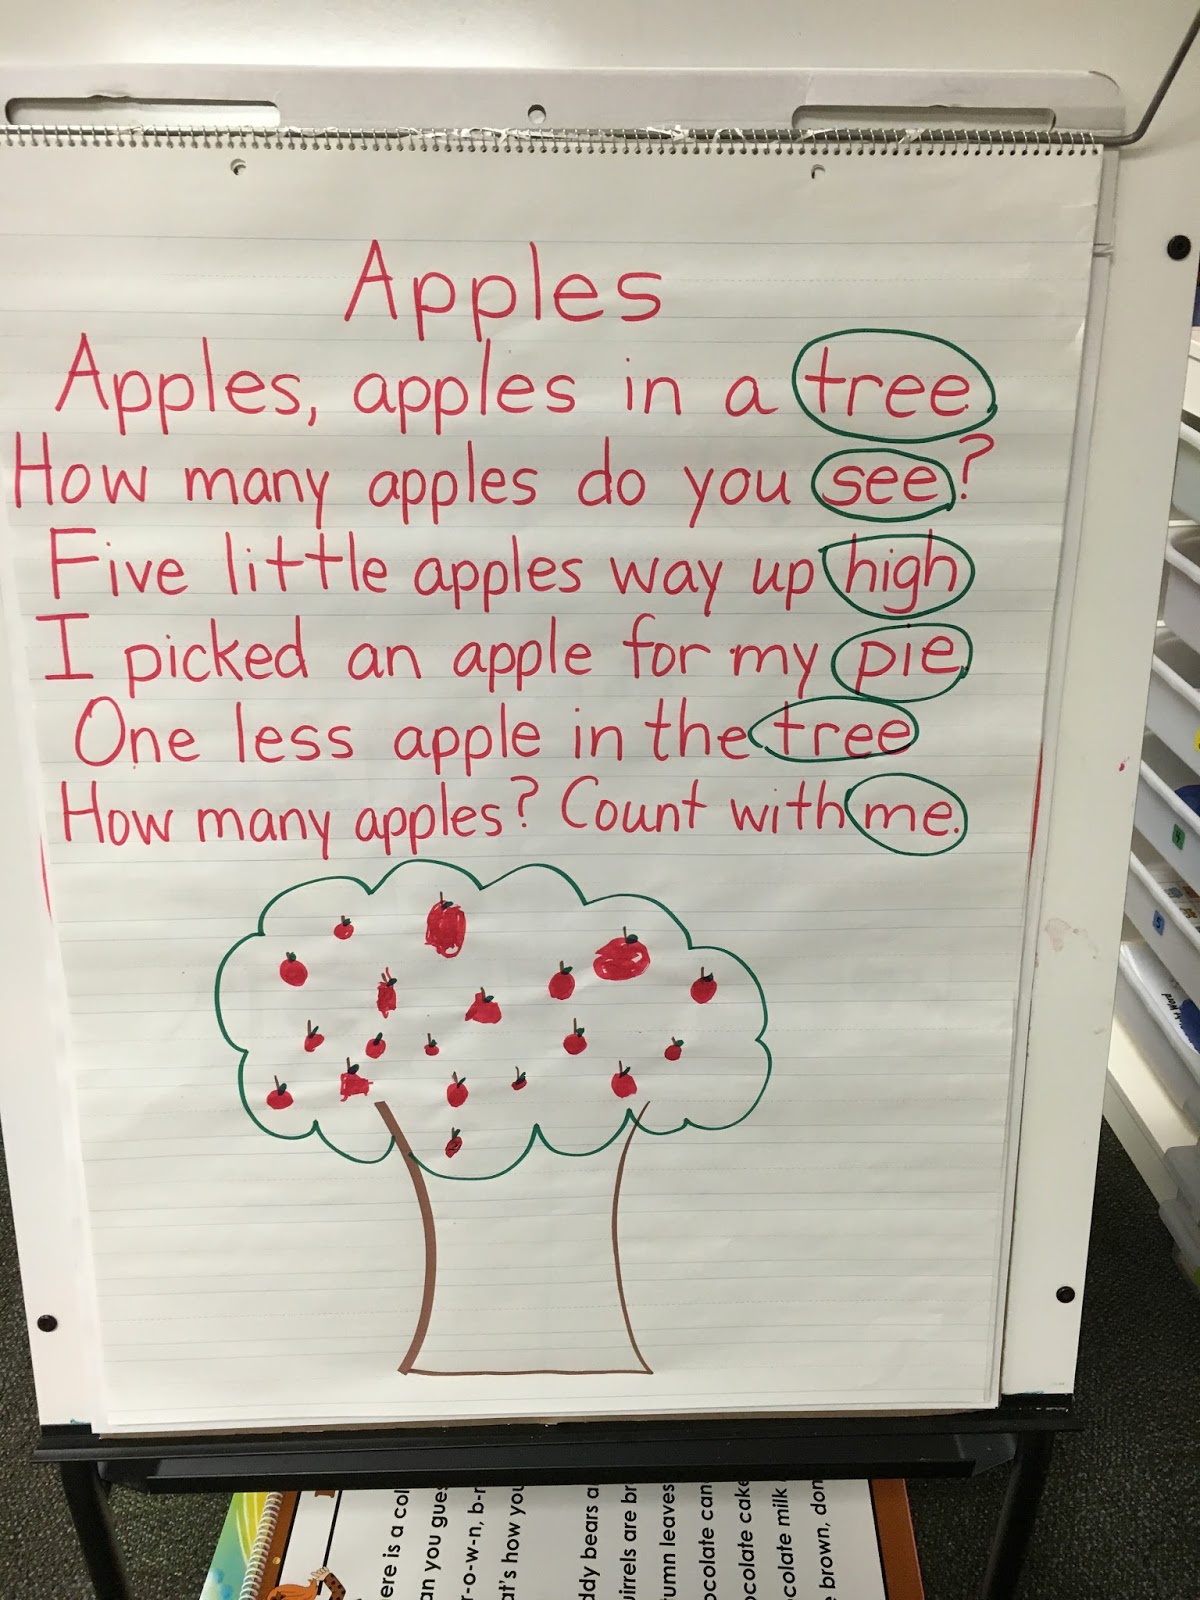 Apples
Apples, apples in a tree.
How many apples do you see?
Five little apples way up high
I picked an apple for my pie.
One less apple in the tree
How many apples? Count with me.
4
5
Word
ere is a col
an you gues
r-o-w-n, b-r
at's how you
ddy bears a
uirrels are br
tumn leaves
ocolate can
ocolate cake
colate milk
brown, don